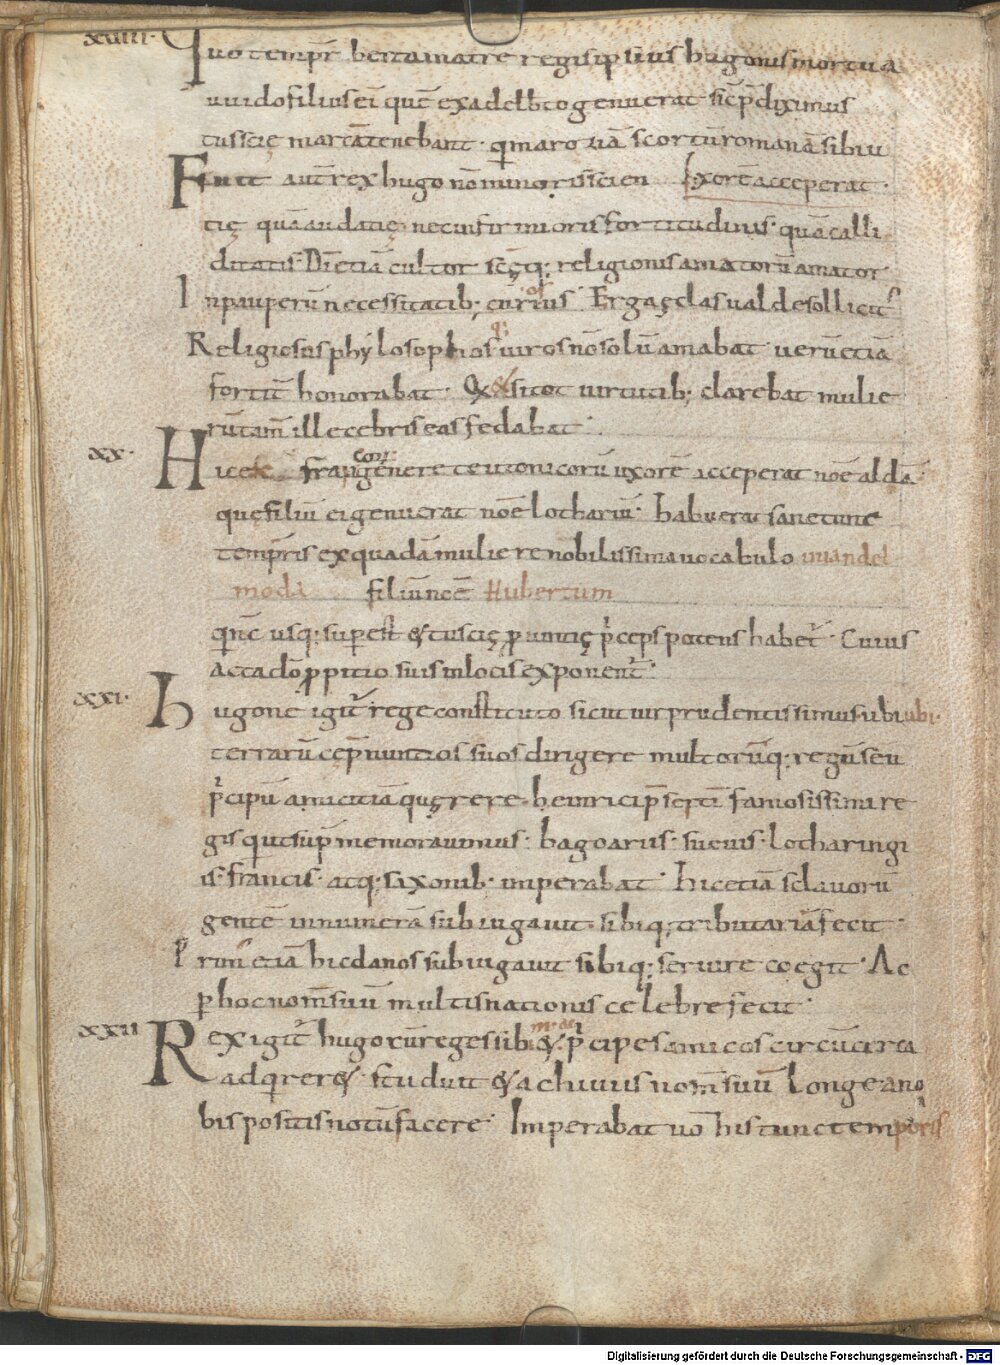 xviiii· Quo tempr̄ berta matre regis ipsius hugonis mortua
uuido filius ei quē ex adelbto genuerat sic̄ p̄diximus
tusscię marcā tenebant· qi maroziā scortū romanā sibi u
Fuit aut̄ rex hugo nō minoris scien xorē acceperat·
tię quā audatię· nec infirmioris fortitudinis· quā calli
ditatis· Dī etiā cultor scęq; religionis amatorū amator
In pauperū necessitatib; curiosus Erga ęclas ualde sollicit
Religiosos phylosophosq; uiros nō solū amabat ueru etiā
fortit̄ honorabat· Qi & si tot uirtutib; clarebat mulie
rū tam̄ illecebris eas fedabat·
xx· Hic ex francor̄ genere teutonicorū uxorē acceperat noē aldā
quę filiū ei genuerat noē lothariū· habuerat sane tunc
tempris ex quadā muliere nobilissima uocabulo uuandel
moda filiū nc̄e Hubertum
qi nc̄ usq; superest & tuscię puintię p̄ceps potens habet̄· Cuius
acta dō ppitio suis in locis exponent̄·
xxi· hugone igit̄ rege constituto sicut uir prudentissimus ubi ubi·
terrarū cep̄ nuntios suos dirigere multorūq; regū seu
p̄cipū amicitiā quęrere· heinrici p̄sertī famosissimi re
gis qi ut sup̄ memorauimus· bagoariis· sueuis· lotharingi
is· francis· atq; saxonib; imperabat· hic etiā sclauorū
gentē innumerā subiugauit· sibiq; tributariā fecit·
Prim̄ etiā hic danos subiugauit sibiq; seruire coegit· Ac
p hoc nom̄ suū multis nationis celebre fecit·
xxii Rex igit̄ hugo cū reges sibimet & p̄cipes amicos circūcirca
adqirere & studuit & achiuis nom̄ suū longe a no
bis positis notū facere· Imperabat uo his tunc temporis
Digitalisierung gefördert durch die Deutsche Forschungsgemeinschaft - DFG